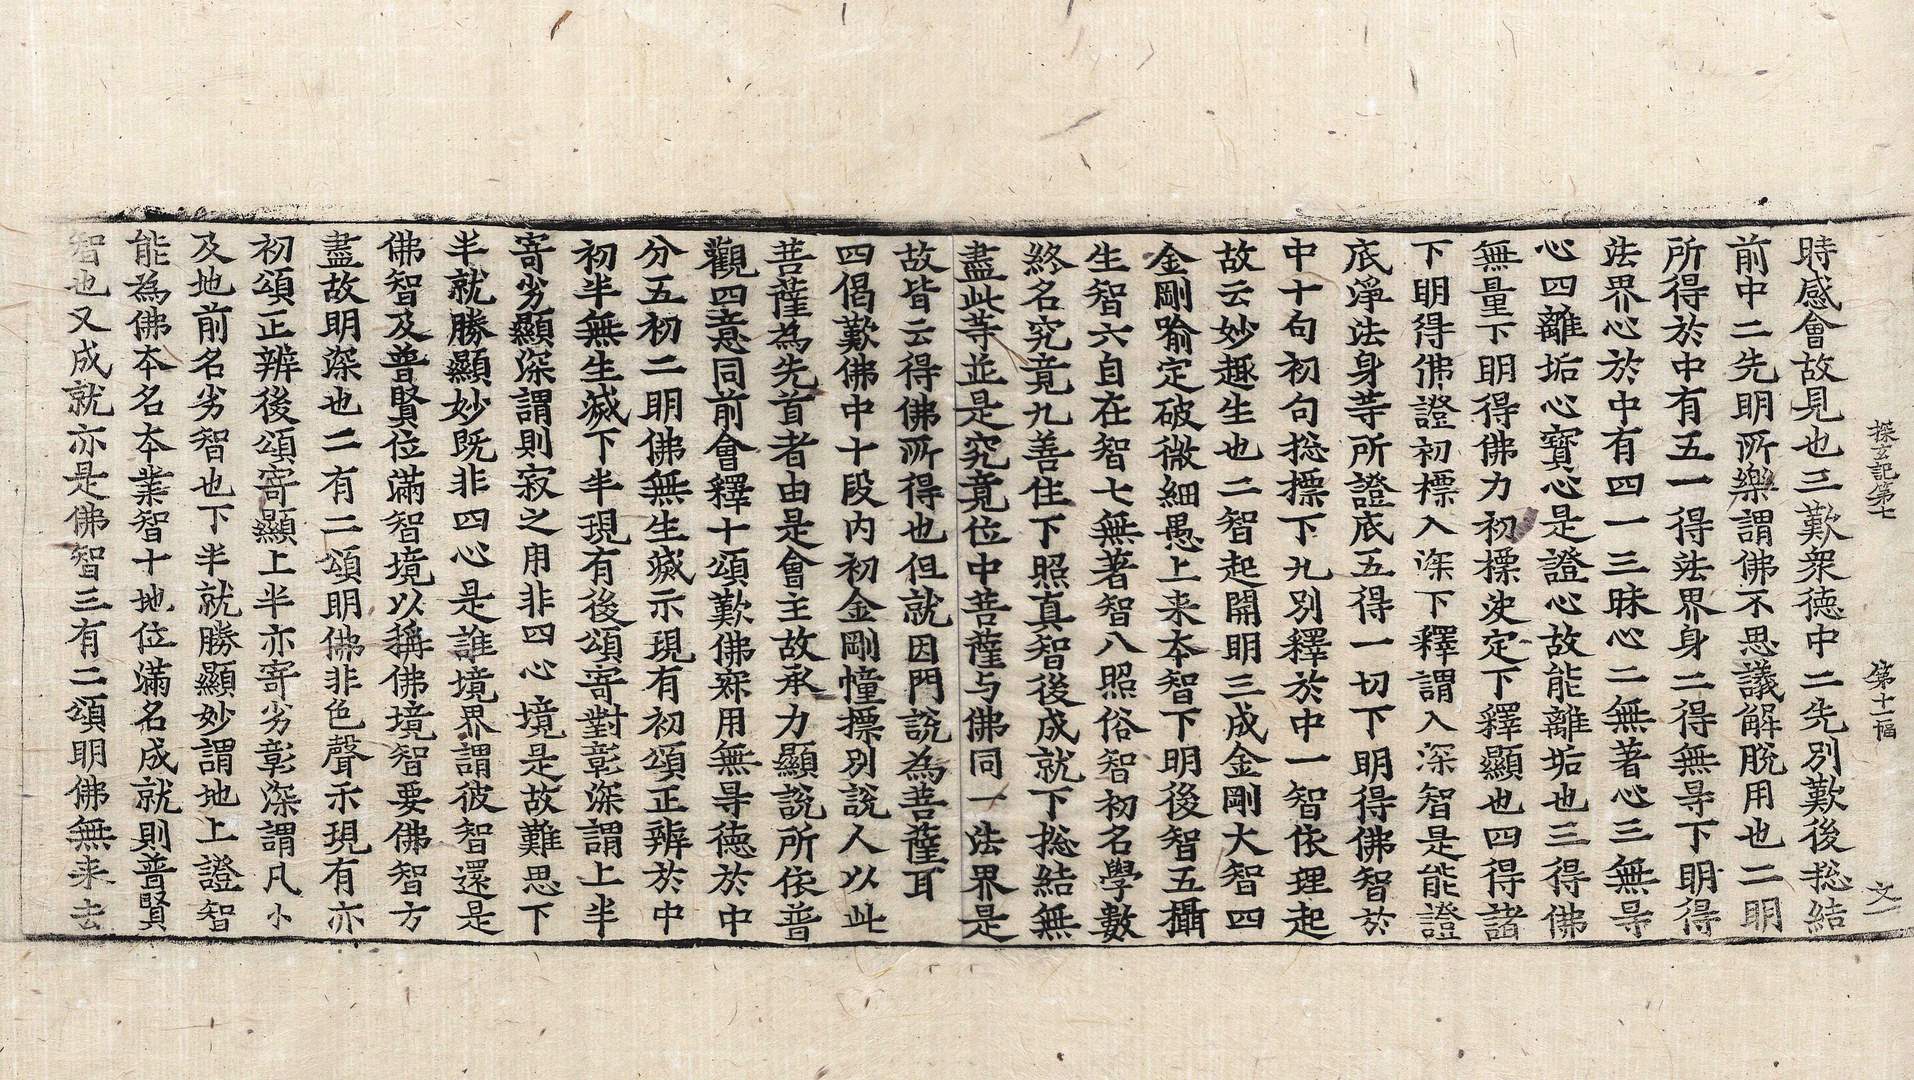 探玄記第七 第十一幅 文一
時感會故見也三歎衆德中二先別歎後捴結
前中二先明所樂謂佛不思議解脫用也二明
所得於中有五一得法界身二得無㝵下明得
法界心於中有四一三昧心二無著心三無㝵
心四離垢心寶心是證心故能離垢也三得佛
無量下明得佛力初標決定下釋顯也四得諸
下明得佛證初標入深下釋謂入深智是能證
底淨法身等所證底五得一切下明得佛智於
中十句初句捴標下九別釋於中一智依理起
故云妙趣生也二智起開明三成金剛大智四
金剛喻定破微細愚上来本智下明後智五攝
生智六自在智七無著智八照俗智初名學數
終名究竟九善住下照真智後成就下捴結無
盡此等並是究竟位中菩薩与佛同一法界是
故皆云得佛所得也但就因門說為菩薩耳
四偈歎佛中十段内初金剛幢標别說人以此
菩薩為先首者由是會主故承力顯說所依普
觀四意同前會釋十頌歎佛寂用無㝵德於中
分五初二明佛無生滅示現有初頌正辨於中
初半無生滅下半現有後頌寄對彰深謂上半
寄劣顯深謂則寂之用非四心境是故難思下
半就勝顯妙既非四心是誰境界謂彼智還是
佛智及普賢位滿智境以稱佛境智要佛智方
盡故明深也二有二頌明佛非色聲示現有亦
初頌正辨後頌寄顯上半亦寄劣彰深謂凡小
及地前名劣智也下半就勝顯妙謂地上證智
能為佛本名本業智十地位滿名成就則普賢
智也又成就亦是佛智三有二頌明佛無来去